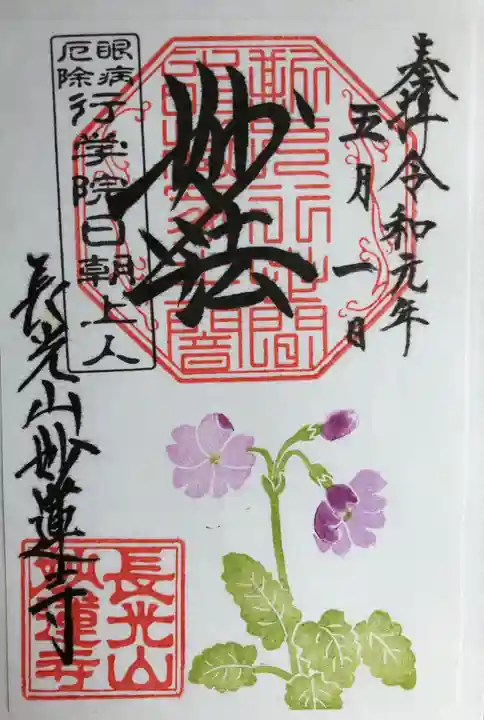 奉拝令和元年
五月一日
妙法
斯人行世間
眼病
厄除
行学院日朝上人
長光山妙蓮寺
長光山
妙蓮寺